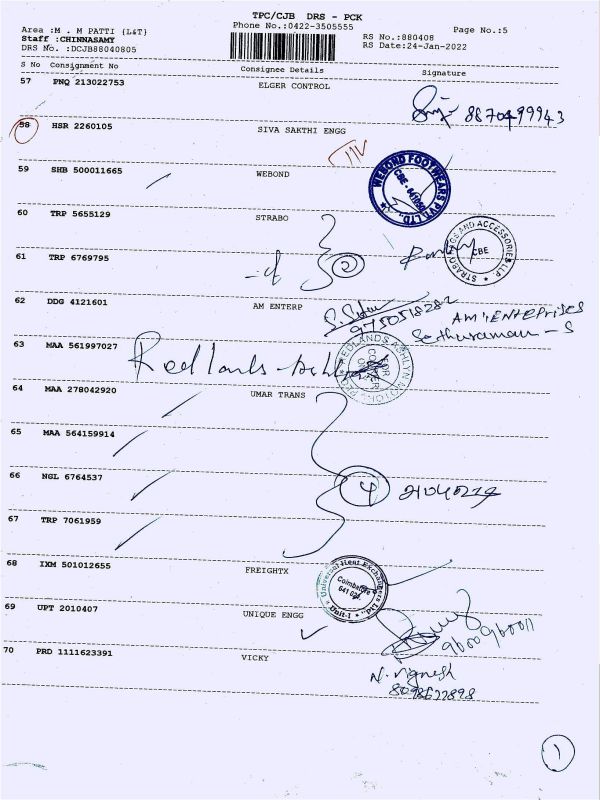 TPC/CJB DRS - PCK
Area :M . M PATTI {L&T}
Phone No.:0422-3505555
Page No.:5
Staff :CHINNASAMY
RS No.:880408
DRS No. :DCJB88040805
RS Date:24-Jan-2022
S No Consignment No Consignee Details Signature
57 PNQ 213022753 ELGER CONTROL
8870499943
58 HSR 2260105 SIVA SAKTHI ENGG
59 SHB 500011665 WEBOND
WEBOND FOOTWEARS PVT. LTD.
CBE - 641050
60 TRP 5655129 STRABO
STRABO BAGS AND ACCESSORIES LLP.
CBE
61 TRP 6769795
2
62 DDG 4121601 AM ENTERP
9750518282
AM ENTERPRISES
Sethuraman - S
63 MAA 561997027
Redlands Ashlyn
REDLANDS ASHLYN MOTORS
64 MAA 278042920 UMAR TRANS
65 MAA 564159914
66 NGL 6764537
4
67 TRP 7061959
68 IXM 501012655 FREIGHTX
Universal Heat Exchangers Ltd
Coimbatore
641 021
Unit-1
69 UPT 2010407 UNIQUE ENGG
9600960011
70 PRD 1111623391 VICKY
N. Vignesh
8098622898
1